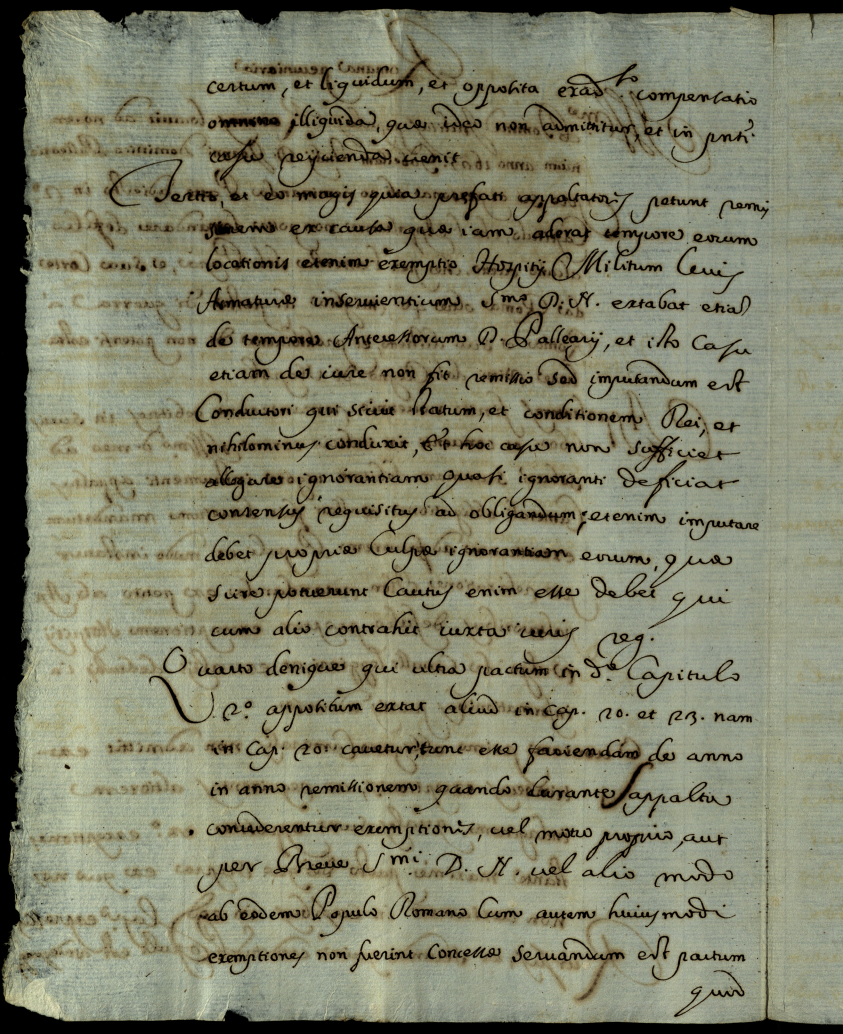 certum, et liquidum, et opposita exad.to compensatio
omnino illiquida, quæ ideo non admittitur, et in pnti
casu reijcienda venit
Tertio, et eo magis quia præfati appaltatores petunt remis
sionem ex causa quæ iam aderat tempore eorum
locationis etenim exemptio Hospitij Militum Levis
Armaturæ inservientium S.mo D. N. extabat etiã
de tempore Antecessorum D. Pallearij, et isto Casu
etiam de iure non fit remissio sed imputandum est
Conductori qui scivit statum, et conditionem Rei, et
nihilominus conduxit, Et hoc casu non sufficiet
allegare ignorantiam quasi ignoranti deficiat
consensus requisitus ad obligandum; etenim imputare
debet propriæ Culpæ ignorantiam eorum, quæ
scire potuerunt Cautus enim esse debet qui
cum alio contrahit iuxta iuris reg.
Quarto denique qui ultra pactum in d.o Capitulo
2.o appositum extat aliud in Cap. 20. et 23. nam
in Cap. 20. cavetur, tunc esse faciendam de anno
in anno remissionem quando durante appaltu
concederentur exemptiones, vel motu proprio, aut
per Breve S.mi D. N. vel alio modo
ab eodem Populo Romano Cum autem huiusmodi
exemptiones non fuerint Concessæ servandum est pactum
quod